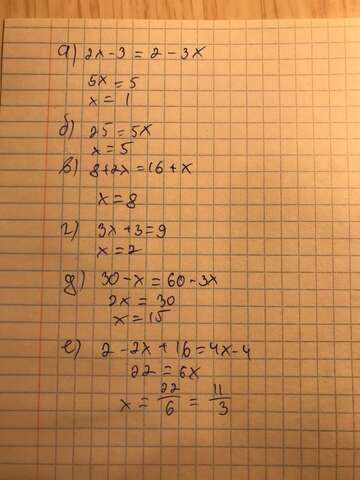 а) 2x - 3 = 2 - 3x
5x = 5
x = 1
б) 25 = 5x
x = 5
в) 8 + 2x = 16 + x
x = 8
г) 3x + 3 = 9
x = 2
д) 30 - x = 60 - 3x
2x = 30
x = 15
е) 2 - 2x + 16 = 4x - 4
22 = 6x
x = 22/6 = 11/3